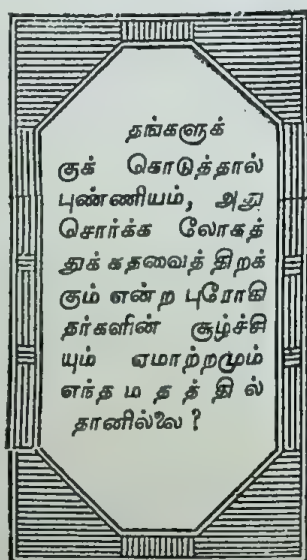 தங்களுக்
குக் கொடுத்தால்
புண்ணியம், அது
சொர்க்க லோகத்
துக் கதவைத் திறக்
கும் என்ற புரோகி
தர்களின் சூழ்ச்சி
யும் ஏமாற்றமும்
எந்த ம த த் தி ல்
தானில்லை ?